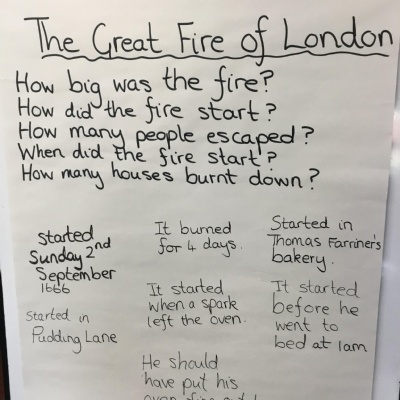 The Great Fire of London
How big was the fire?
How did the fire start?
How many people escaped?
When did the fire start?
How many houses burnt down?
Started
Sunday 2nd
September
1666
Started in
Pudding Lane
It burned
for 4 days.
It started
when a spark
left the oven.
He should
have put his
Started in
Thomas Farriner's
bakery.
It started
before he
went to
bed at 1am